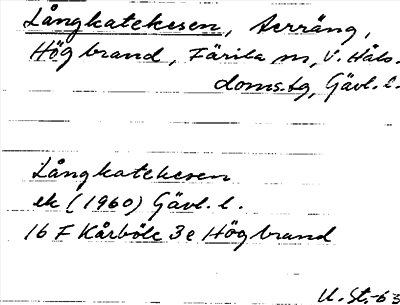 Långkatekesen, terräng,
Högbrand, Färila sn, V. Häls.
doms.tg, Gävl. l.
Långkatekesen
ek (1960) Gävl. l.
16 F Kårböle 3 e Högbrand
U. St.-63